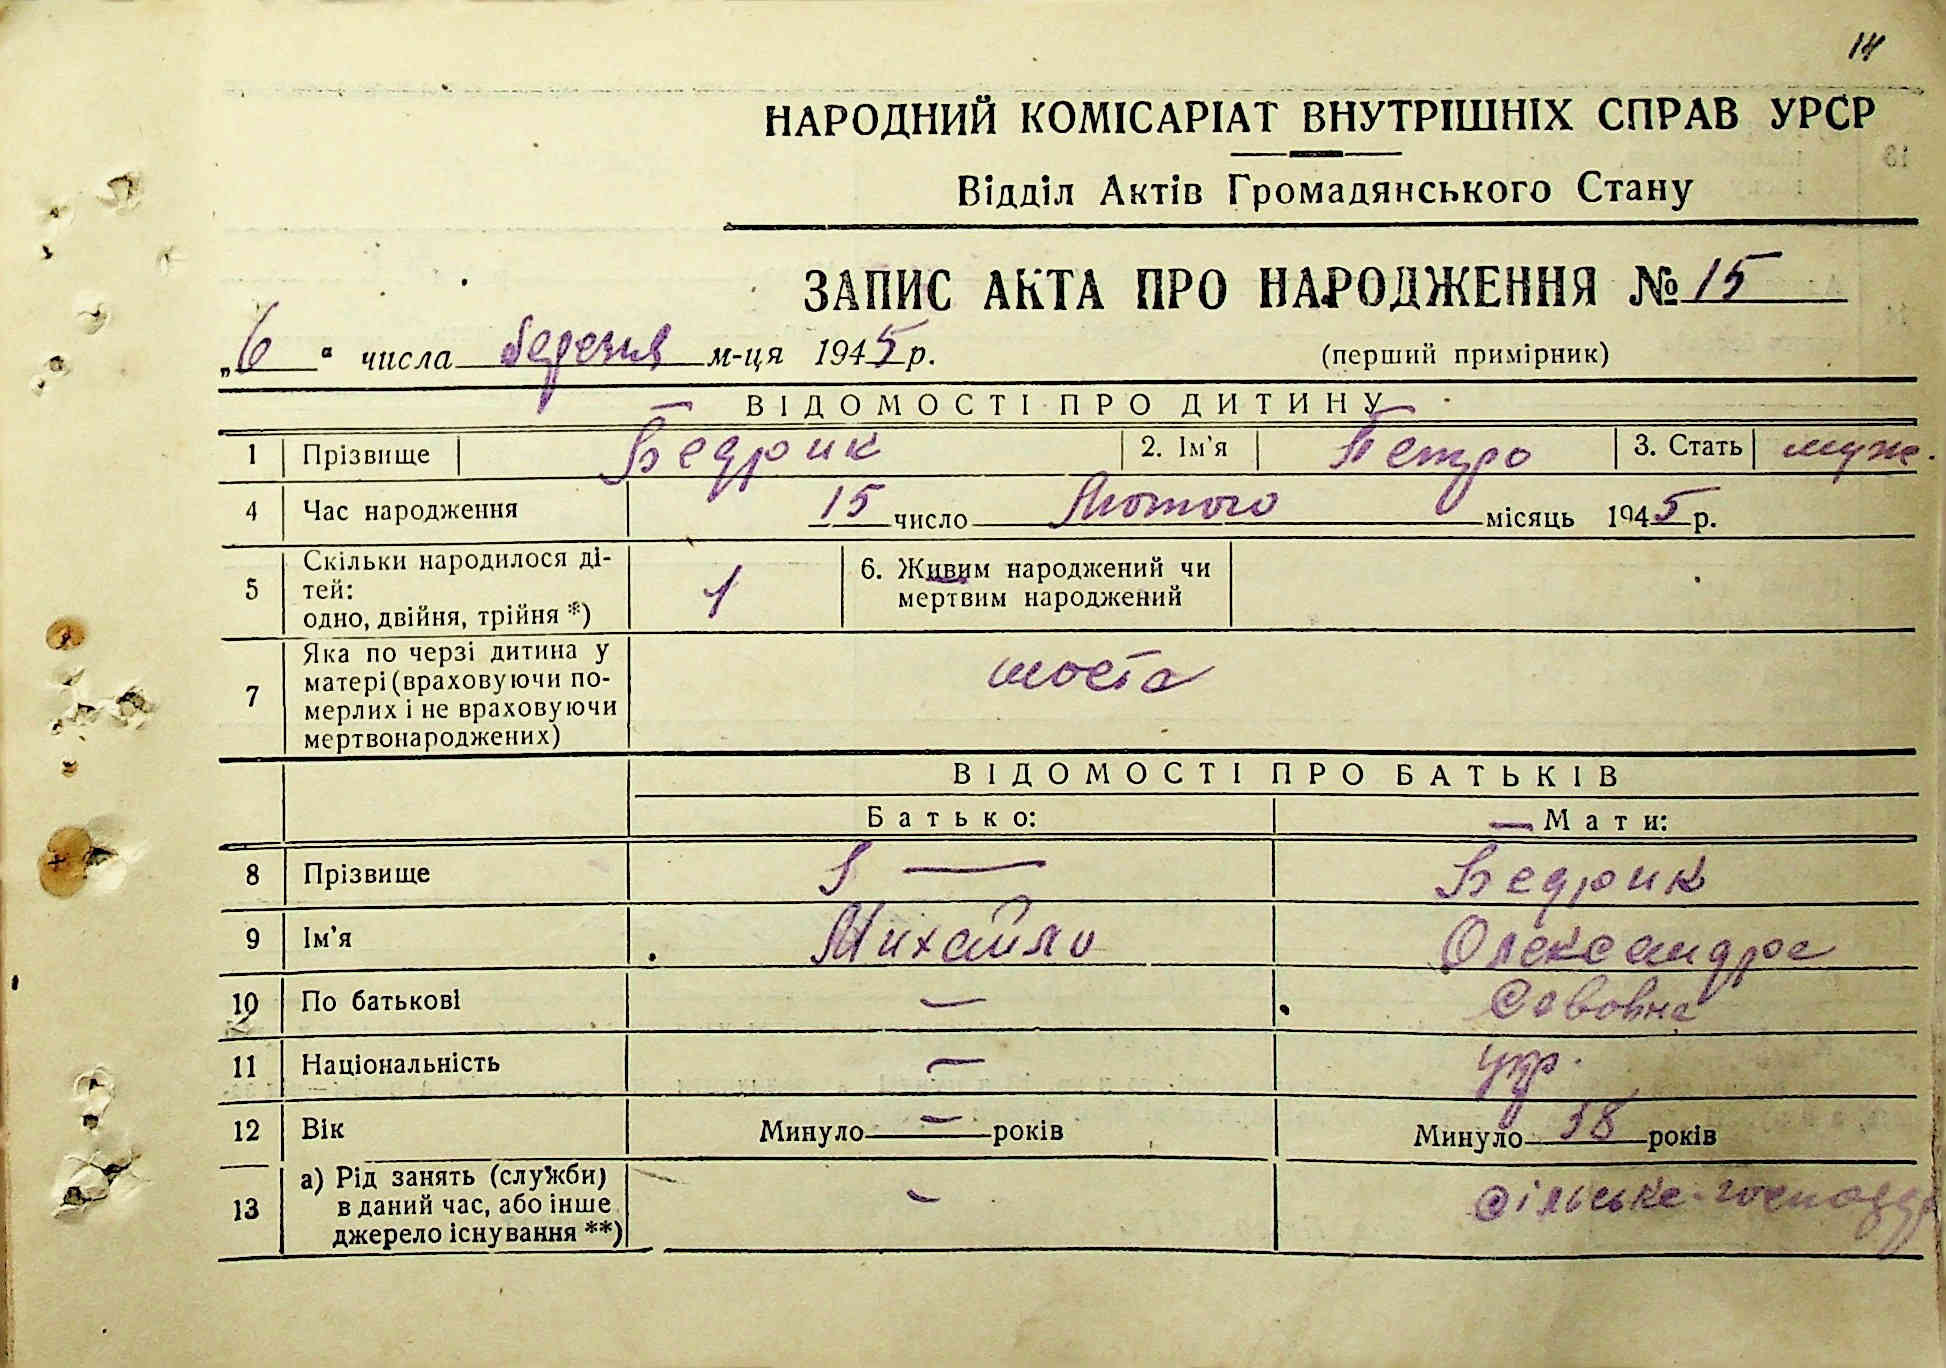 14
НАРОДНИЙ КОМІСАРІАТ ВНУТРІШНІХ СПРАВ УРСР
Відділ Актів Громадянського Стану
ЗАПИС АКТА ПРО НАРОДЖЕННЯ № 15
„6“ числа березня м-ця 1945 р. (перший примірник)
ВІДОМОСТІ ПРО ДИТИНУ
1 Прізвище Бедрик 2. Ім'я Петро 3. Стать муж.
4 Час народження 15 число Лютого місяць 1945 р.
5 Скільки народилося ді-
тей:
одно, двійня, трійня *) 1 6. Живим народжений чи
мертвим народжений
7 Яка по черзі дитина у
матері (враховуючи по-
мерлих і не враховуючи
мертвонароджених) шоста
ВІДОМОСТІ ПРО БАТЬКІВ
Батько: Мати:
8 Прізвище — Бедрик
9 Ім'я Михайло Олександра
10 По батькові — Савовна
11 Національність — укр.
12 Вік Минуло — років Минуло 38 років
13 а) Рід занять (служби)
в даний час, або інше
джерело існування **) - сільське-господар